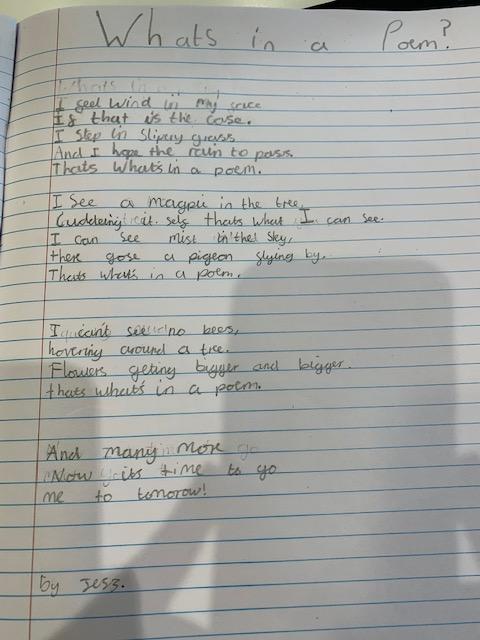 Whats in a Poem?
I feel wind in my face
If that is the case.
I step in slipery grass
And I hope the rain to pass.
Thats what's in a poem.
I see a magpie in the tree,
Cuddeling it self thats what I can see.
I can see mist in the sky,
there gose a pigeon flying by.
Thats what's in a poem.
I can't see no bees,
hovering around a tree.
Flowers geting bigger and bigger.
thats what's in a poem.
And many more
Now its time to go
me to tomorow!
by Jess.